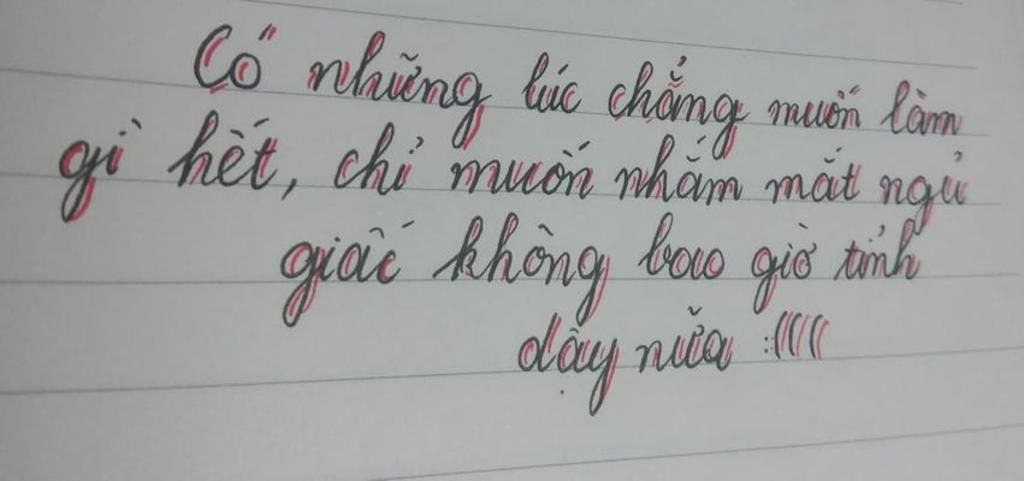 Có những lúc chẳng muốn làm
gì hết, chỉ muốn nhắm mắt ngủ
giấc không bao giờ tỉnh
dậy nữa :((((